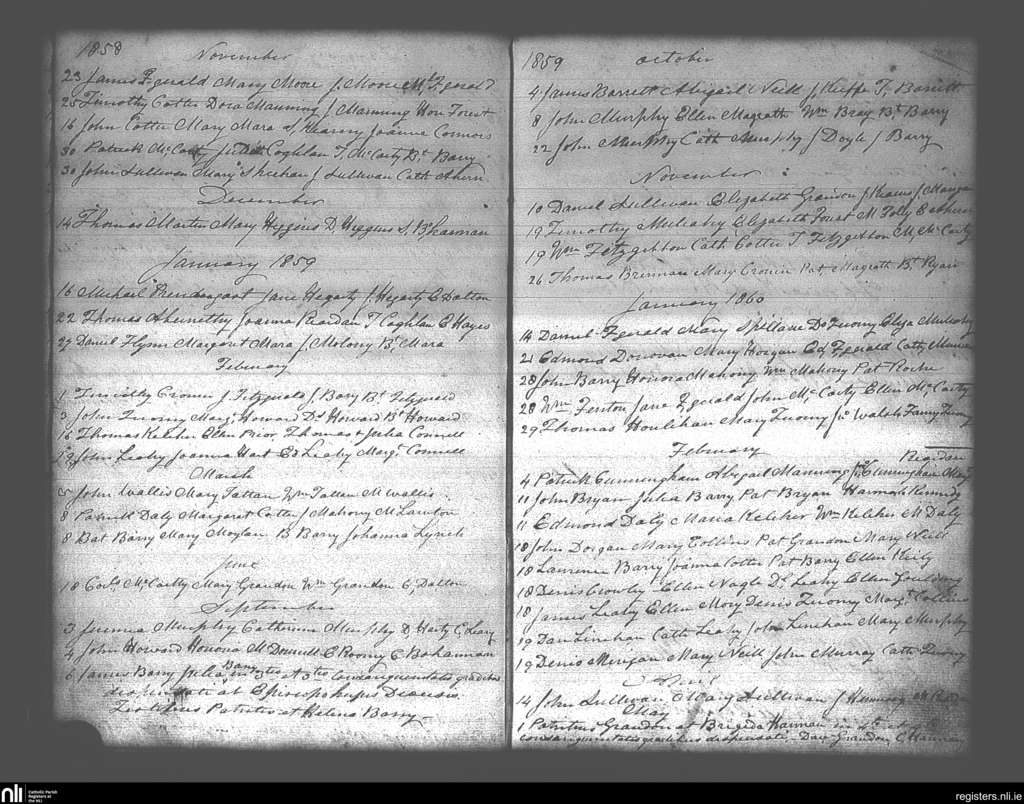 1858
November
23 James Fgerald Mary Moore J. Moore Mt Fgerald
25 Timothy Cotter Dora Manning J Manning Hon Forest
16 John Cotter Mary Mara S. Kearny Joanna Connors
30 Patrick McCarty Judith Coghlan T. McCarty Bt Barry
30 John Sullivan Mary Sheehan J Sullivan Cath Ahern
December
14 Thomas Martin Mary Higgins D Higgins
January 1859
16 Michael Prendergast Jane Hegarty J. Hegarty E Dalton
22 Thomas Joanna Reardan T Coghlan E Hayes
27 Daniel Flynn Margaret Mara J. Molony Bt Mara
February
1 Timothy Cronin J Fitzgerald J. Bary Bt Fitzgerald
3 John Twomy Margt Howard Dl Howard Bt Howard
16 Thomas Keleher Ellen Prior, Thomas & Julia Connell
19 John Leahy Joanna Hart Ed Leahy Margt Connell
March
5 John Wallis Mary Tattan Wm Tattan M Wallis
8 Patrick Daly Margaret Cotter J Mahony M Lawton
8 Bat Barry Mary Moylan B Barry Johanna Lynch
June
18 Corls McCarthy Mary Grandon Wm Grandon C. Dalton
September
3 Murphy Catherine Murphy D Harty C, Leary
4 John Howard Honora McDonnell E Roony C Bohannan
6 James Barry Julia Barry in 3tio et 3tio Consanguinitatis gradibus
dispensati at Episcopo hujus Diocesis
Testibus Patritio et Helena Barry
1859 October
4 James Barrett Abigail Neill J Keiffe T. Barrett
8 John Murphy Ellen Magrath Wm Bray Bt Barry
22 John Murphy Cath Murphy J Doyle J Barry
November
10 Daniel Sullivan Elizabeth J Kearns J. Mangan
19 Timothy Mulcahy Elizabeth Forest M Foley
19 Wm Fitzgibbon Cath Cotter T Fitzgibbon M. McCarty
26 Thomas Brennan Mary Cronin Pat. Magrath Bt Ryan
January 1860
14 Daniel Fgerald Mary Spillane Ds Twomy Eliza Mulcahy
21 Edmond Donovan Mary Horgan Ed Fgerald Cath
28 John Barry Honora Mahony Wm Mahony Pat Roche
28 Wm Fenton Jane Fgerald John McCarty Ellen McCarthy
29 Thomas Houlehan Mary Twomy Jn Walsh Fanny Twomy
February Reardan
4 Patrick Cunningham Abigail Manning Jn Cunningham Mary
11 John Bryan Julia Barry Pat Bryan Hannah Kennedy
11 Edmond Daly Maria Keleher Wm Keleher M Daly
18 John Dorgan Mary Collins Pat Grandon Mary Neill
18 Laurence Barry Joanna Cotter Pat Barry Ellen Keily
18 Denis Crowley Ellen Nagle Dl Leahy Ellen Goulding
18 James Leahy Ellen Mory Denis Twomy Margt Collins
19 Dan Linehan Cath Leahy John Linehan Mary Murphy
19 Denis Merigan Mary Neill John Murray Cath Twomy
April
14 John Sullivan Mary Sullivan J
May
1 Patritius Grandon et Brigida Hannan in 4to et
consanguinitatis gradibus dispensati, Dan Grandon, C Hannan
nli
Catholic Parish
Registers at
the NLI
registers.nli.ie